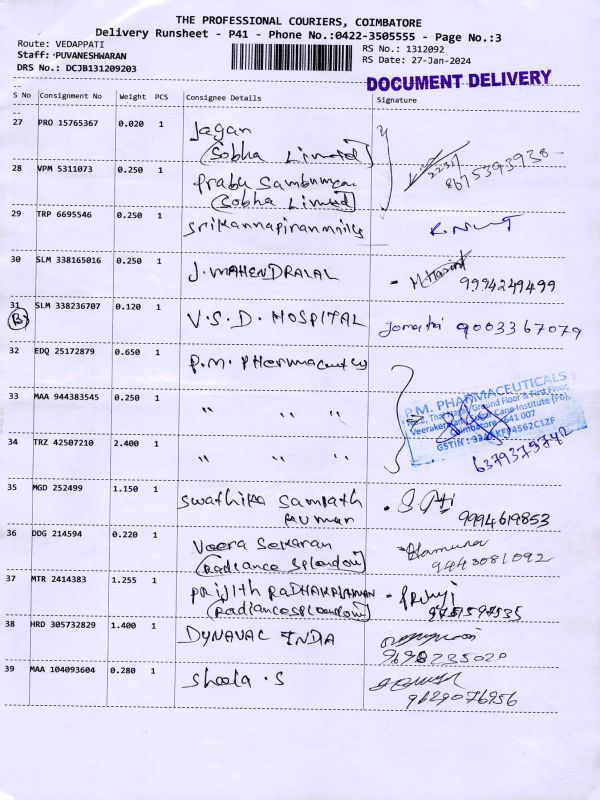 THE PROFESSIONAL COURIERS, COIMBATORE
Delivery Runsheet - P41 - Phone No.:0422-3505555 - Page No.:3
Route: VEDAPPATI
RS No.: 1312092
Staff: PUVANESHWARAN
RS Date: 27-Jan-2024
DRS No.: DCJB131209203
DOCUMENT DELIVERY
S No Consignment No Weight PCS Consignee Details Signature
27 PRO 15765367 0.020 1 Jagan
(Sobha Limited)
28 VPM 5311073 0.250 1 Prabu
(Sobha Limited)
29 TRP 6695546 0.250 1 Srikannapiran mills
30 SLM 338165016 0.250 1 J. MAHENDRALAL
9994249499
31 SLM 338236707 0.120 1 V.S.D. HOSPITAL 9003367079
(B)
32 EDQ 25172879 0.650 1 P.M.
33 MAA 944383545 0.250 1 " " "
34 TRZ 42507210 2.400 1 " " "
P.M. PHARMACEUTICALS
Ground Floor & First Floor,
Cane Institute (PO),
Coimbatore - 641 007
6379375742
35 MGD 252499 1.150 1 Swathika Sampath
kumar
9994619853
36 DDG 214594 0.220 1 Veera Sekaran
(Radiance Splendour)
9443081092
37 MTR 2414383 1.255 1 Prijith RADHAKRISHNAN
(Radiance Splendour)
38 HRD 305732829 1.400 1 DYNAVAC INDIA
39 MAA 104093604 0.280 1 Sheela . S
9629076956